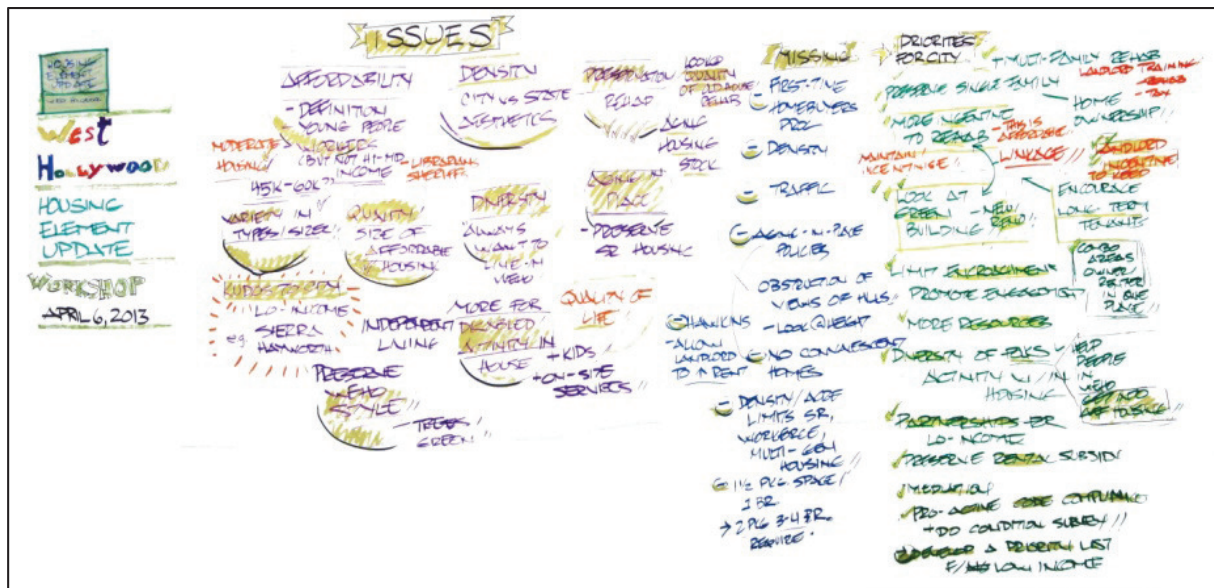 HOUSING
ELEMENT
UPDATE
West
Hollywood
HOUSING
ELEMENT
UPDATE
WORKSHOP
APRIL 6, 2013
ISSUES
AFFORDABILITY
- DEFINITION
- YOUNG PEOPLE
- WORKERS
(BUT NOT HI-MD
INCOME
- LIBRARIANS
SHERIFF
MODERATE
HOUSING
45K-60K?
VARIETY IN
TYPES/SIZES
QUALITY/
SIZE OF
AFFORDABLE
HOUSING
KUDOS TO CITY
LO-INCOME
e.g. SIERRA
HAYWORTH
INDEPENDENT
LIVING
PRESERVE
WEHO
STYLE
- TREES
GREEN
DENSITY
CITY VS STATE
AESTHETICS
DIVERSITY
ALWAYS
WANT TO
LIVE IN
WEHO
MORE FOR
DISABLED
ACTIVITY IN
HOUSE
+ KIDS
+ ON-SITE
SERVICES
QUALITY OF
LIFE
PRESERVATION
REHAB
LOOK @
QUALITY
OF OLD HOUSE
REHAB
AGING
HOUSING
STOCK
AGING IN
PLACE
- PRESERVE
SR HOUSING
MISSING
- FIRST-TIME
HOMEBUYERS
PROG
- DENSITY
- TRAFFIC
- AGING-IN-PLACE
POLICIES
OBSTRUCTION OF
VIEWS OF HILLS
- LOOK @ HEIGHT
HAWKINS
- ALLOW
LANDLORD
TO ↑ RENT
NO CONVALESCENT
HOMES
- DENSITY/ACRE
LIMITS SR,
WORKFORCE,
MULTI-GEN
HOUSING
1½ PKG. SPACE/
1 BR
→ 2 PKG 3-4 BR.
REQUIRE.
PRIORITIES
FOR CITY
+ MULTI-FAMILY REHAB
PRESERVE SINGLE FAMILY
LANDLORD TRAINING
- REHAB
- TAX
MORE INCENTIVE
TO REHAB
- THIS IS
AFFORDABLE
HOME
OWNERSHIP!!
MAINTAIN/
INCENTIVISE
LINKAGE!!
LANDLORD
INCENTIVE
TO KEEP
LOOK AT
GREEN
BUILDING
- NEW/
RENO
ENCOURAGE
LONG-TERM
TENANTS
COMBO
AREAS
OWNER/
RENTER
IN ONE
PLACE
LIMIT ENCROACHMENT
PROMOTE ENGAGEMENT
MORE RESOURCES
DIVERSITY OF FOLKS
ACTIVITY W/IN
HOUSING
HELP
PEOPLE
IN
WEHO
PARTNERSHIPS FOR
LO-INCOME
PRESERVE RENTAL SUBSIDY
MEDIATION
PRO-ACTIVE CODE COMPLIANCE
+ DO CONDITION SURVEY!!
DEVELOP A PRIORITY LIST
F/ LOW INCOME